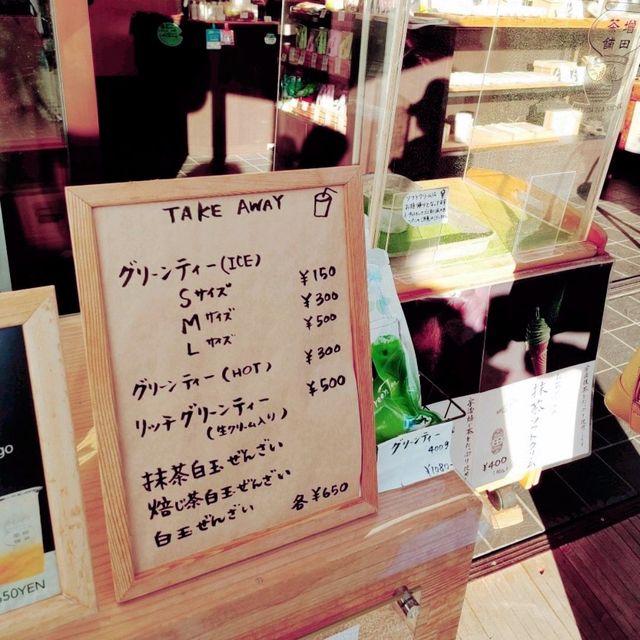 TAKE AWAY
グリーンティー(ICE)
Sサイズ ¥150
Mサイズ ¥300
Lサイズ ¥500
グリーンティー(HOT) ¥300
リッチグリーンティー ¥500
(生クリーム入り)
抹茶白玉ぜんざい
焙じ茶白玉ぜんざい
白玉ぜんざい 各¥650
グリーンティー
400g
ソフトクリームは
¥400
go
650YEN